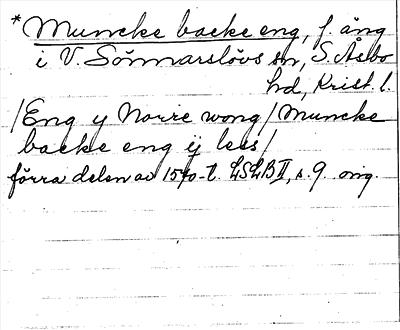 *Muncke backe eng, f. äng
i V. Sönnarslövs sn, S. Åsbo
hd, Krist. l.
/Eng y Norre wong/Muncke
backe eng ij less/
förra delen av 1570-t. LSLB II, s. 9. orig.